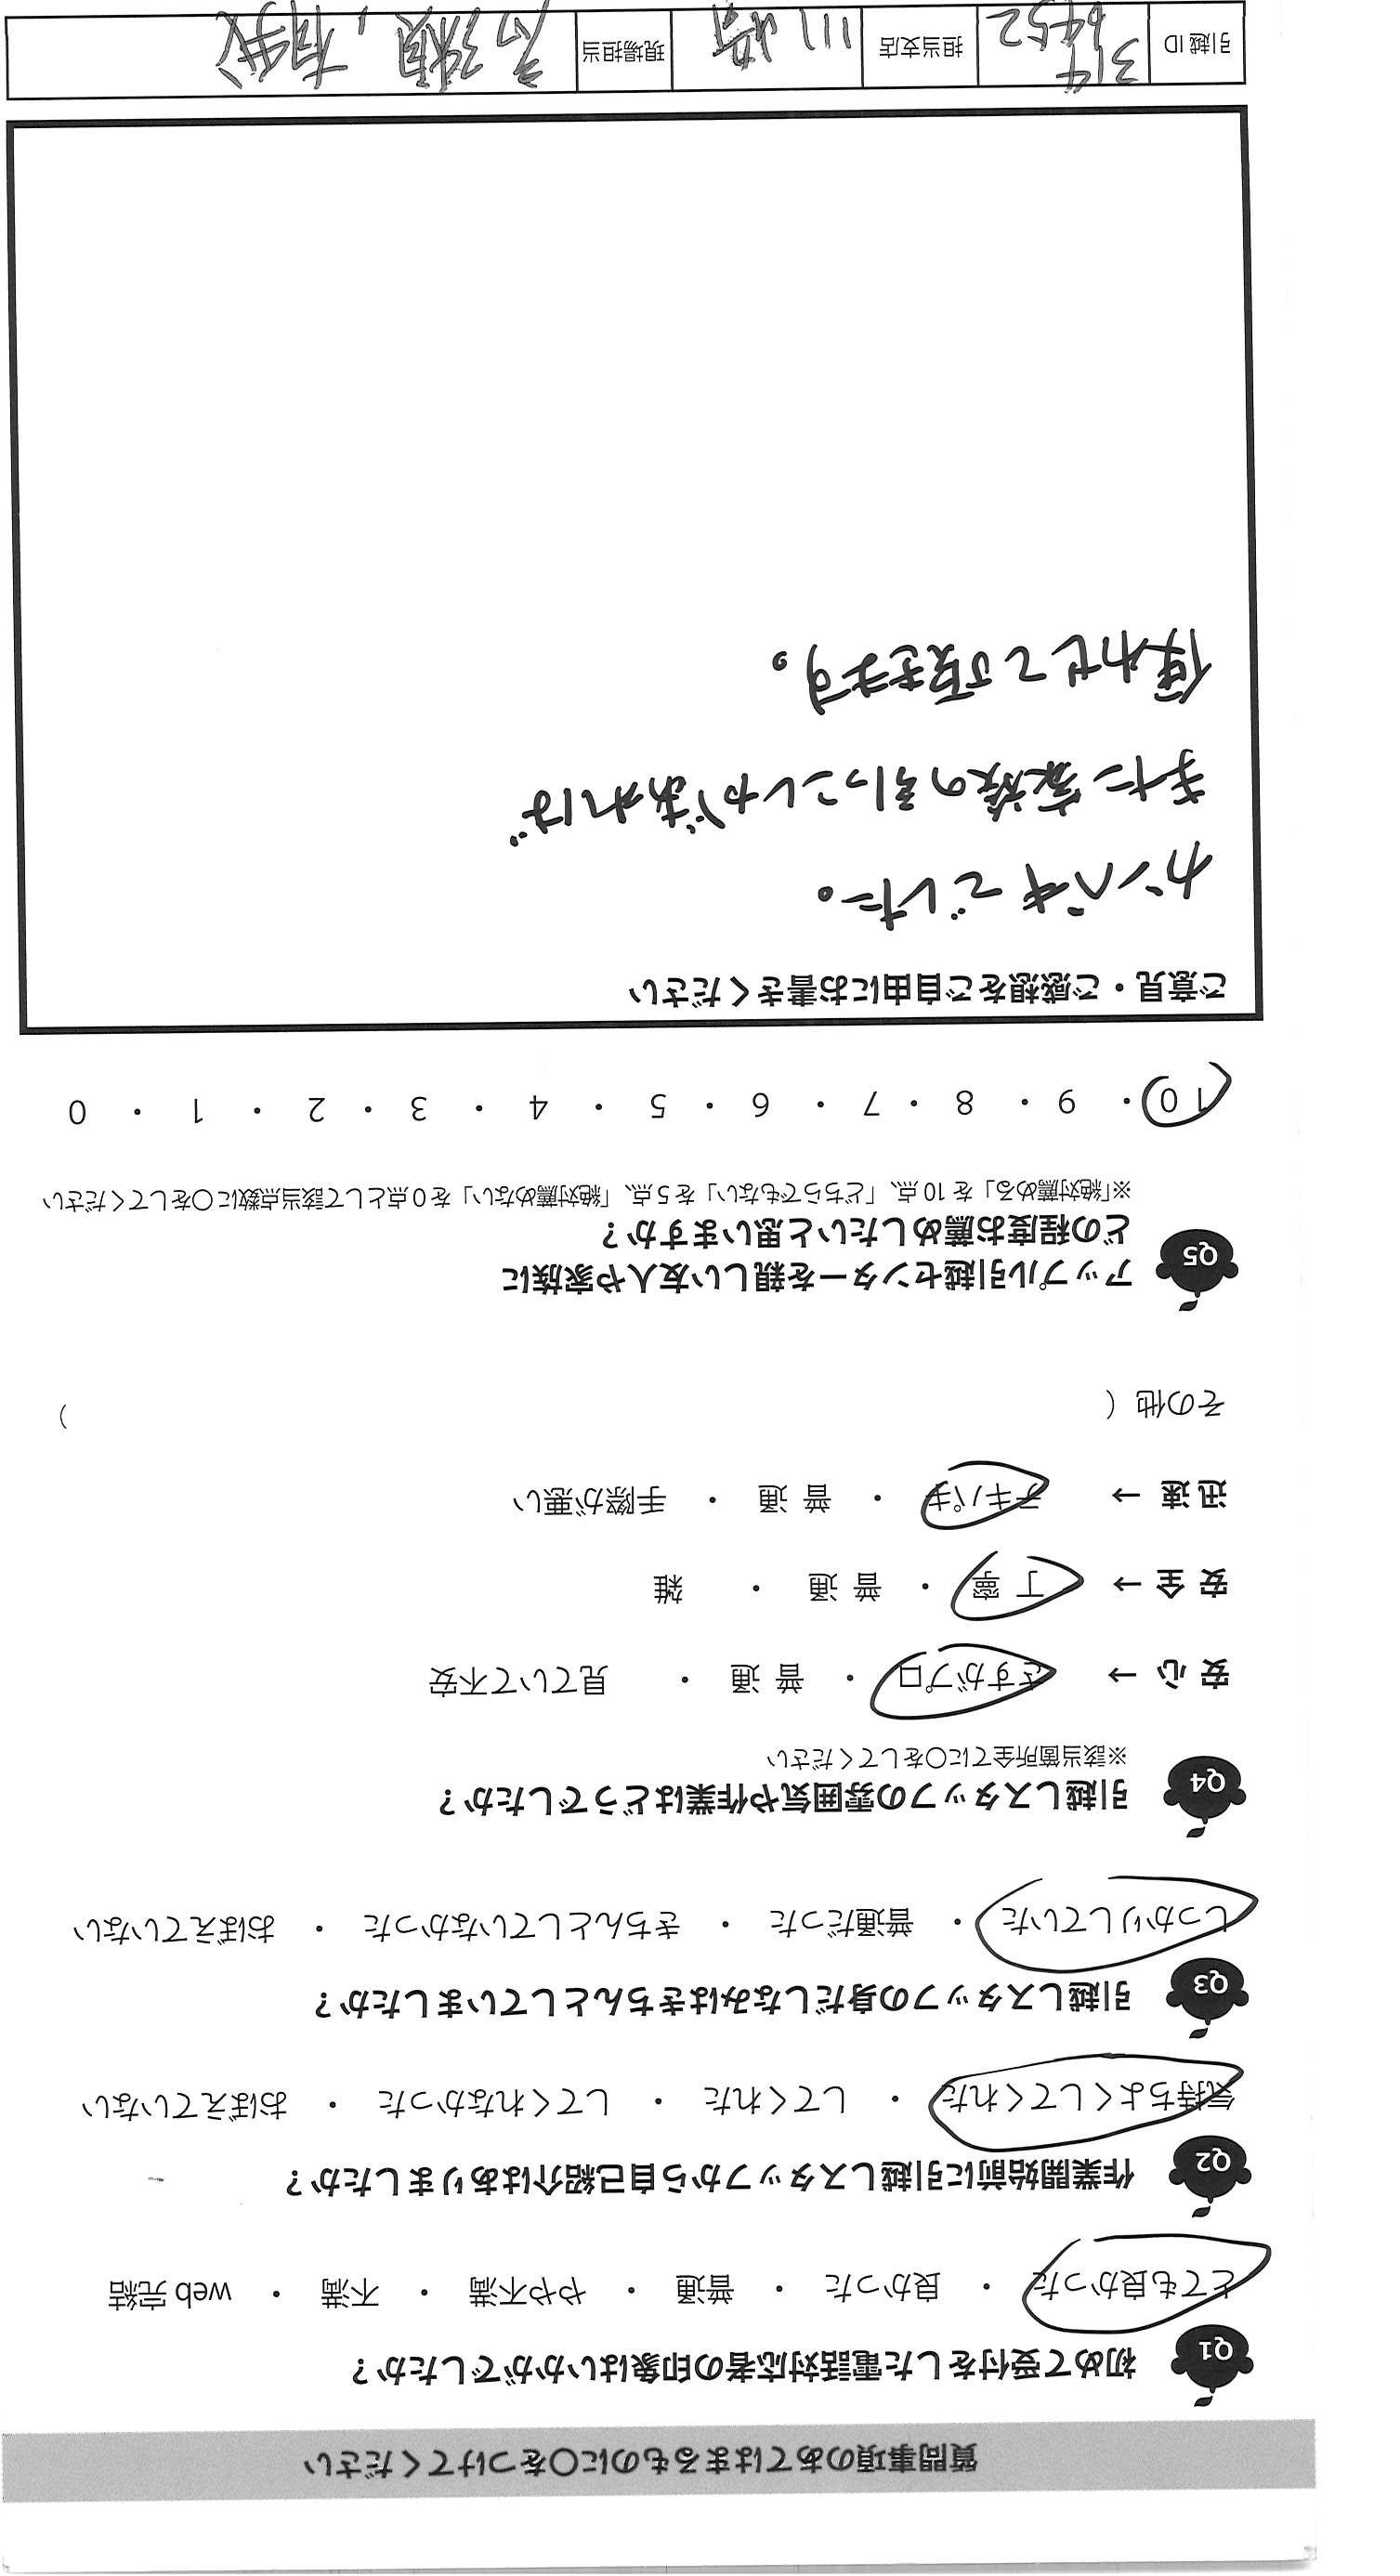 質問事項のあてはまるものに○をつけてください
Q1 初めて受付をした電話対応者の印象はいかがでしたか？
とても良かった ・ 良かった ・ 普通 ・ やや不満 ・ 不満 ・ web 完結
Q2 作業開始前に引越しスタッフから自己紹介はありましたか？
気持ちよくしてくれた ・ してくれた ・ してくれなかった ・ おぼえていない
Q3 引越しスタッフの身だしなみはきちんとしていましたか？
しっかりしていた ・ 普通だった ・ きちんとしていなかった ・ おぼえていない
Q4 引越しスタッフの雰囲気や作業はどうでしたか？
※該当箇所全てに○をしてください
安 心 → さすがプロ ・ 普 通 ・ 見ていて不安
安 全 → 丁 寧 ・ 普 通 ・ 雑
迅 速 → テキパキ ・ 普 通 ・ 手際が悪い
その他（ ）
Q5 アップル引越センターを親しい友人や家族に
どの程度お薦めしたいと思いますか？
※「絶対薦める」を 10 点、「どちらでもない」を 5 点、「絶対薦めない」を 0 点として該当点数に○をしてください
10 ・ 9 ・ 8 ・ 7 ・ 6 ・ 5 ・ 4 ・ 3 ・ 2 ・ 1 ・ 0
ご意見・ご感想をご自由にお書きください
カンペキでした。
また家族の引っこしがあれば
使わせて頂きます。
引越 ID 担当支店 川崎 現場担当